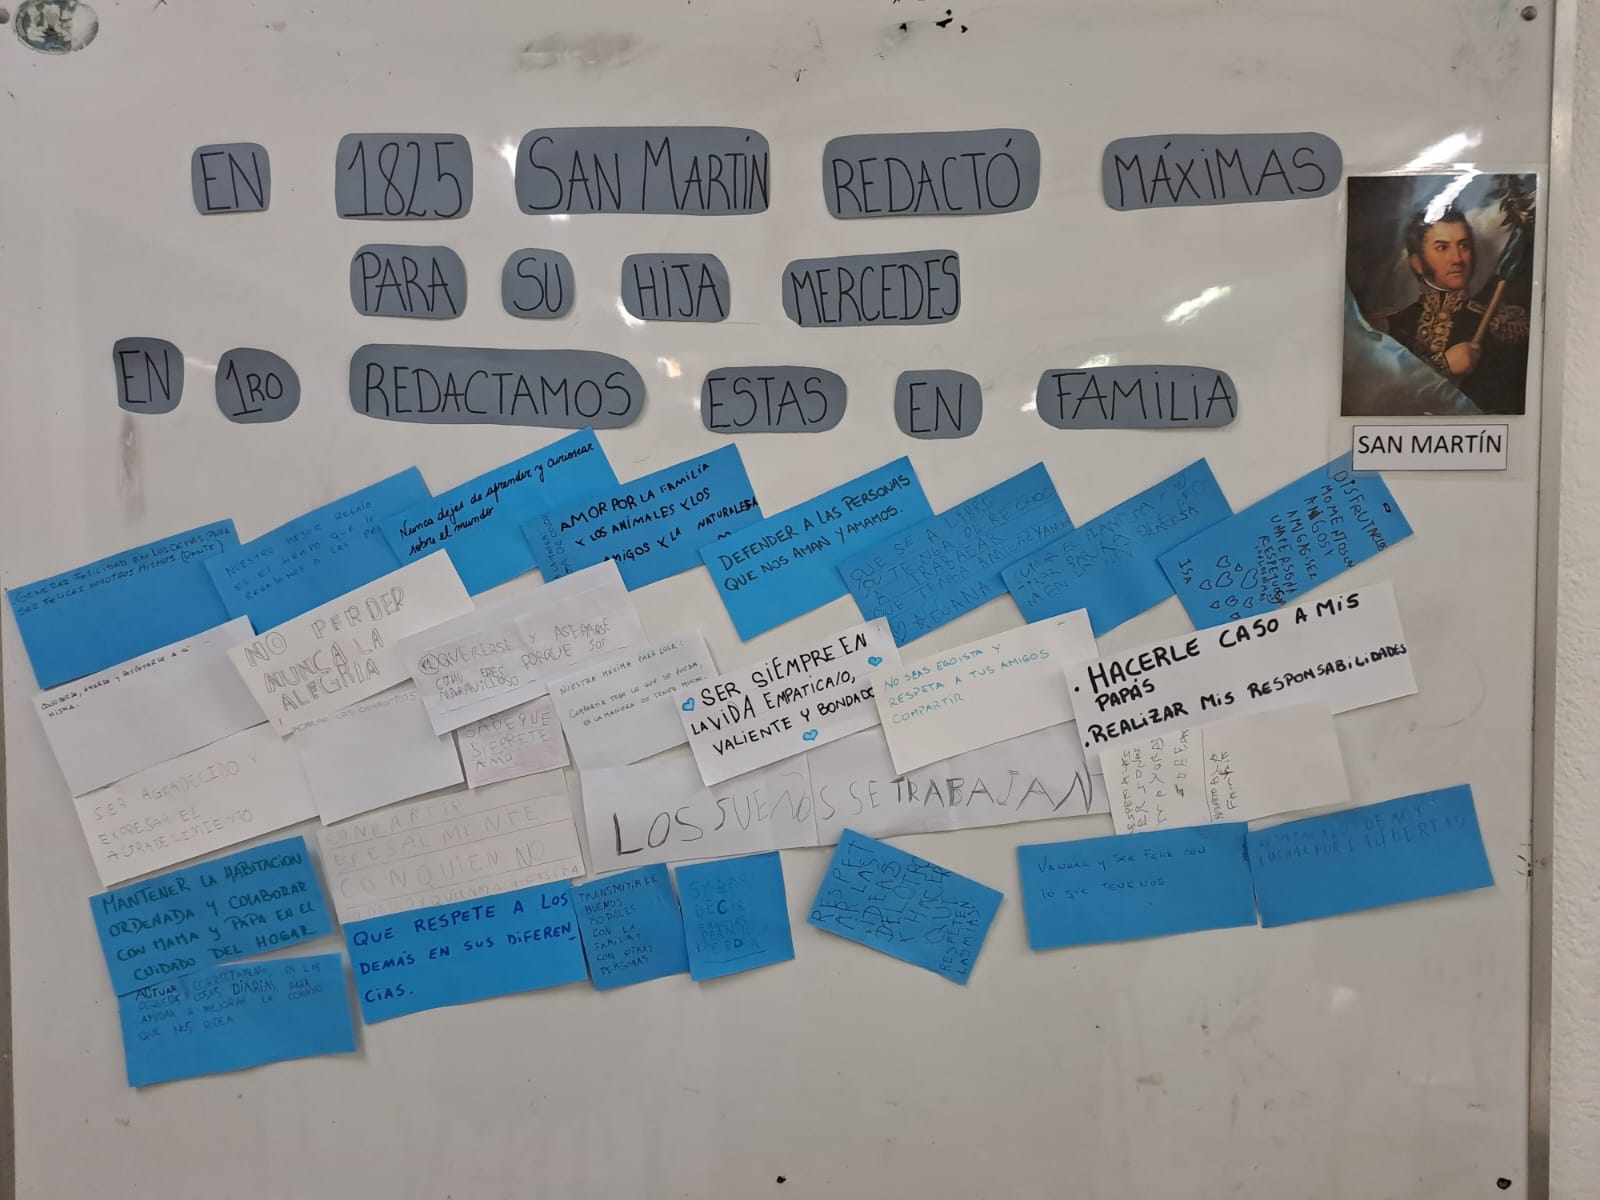 EN 1825 SAN MARTÍN REDACTÓ MÁXIMAS
PARA SU HIJA MERCEDES
EN 1RO REDACTAMOS ESTAS EN FAMILIA
SAN MARTÍN
GENERAR FELICIDAD EN LOS DEMÁS PARA
SER FELICES NOSOTROS MISMOS. (DANTE)
NUESTRO MEJOR REGALO
ES EL TIEMPO QUE LE
REGALAMOS A LAS
Nunca dejes de aprender y curiosear
sobre el mundo
AMOR POR LA FAMILIA
Y LOS ANIMALES Y LOS
AMIGOS Y LA NATURALEZA
DEFENDER A LAS PERSONAS
QUE NOS AMAN Y AMAMOS.
QUE SEA LIBRE
DISFRUTAR LOS
MOMENTOS CON
AMIGOS
AMIGAS SER
UNA PERSONA
RESPETUOSA
ISA
CONOCERSE, AMARSE Y RESPETARSE A SÍ
MISMA.
NO PERDER
NUNCA LA
ALEGRIA
QUERERSE Y ACEPTARSE
COMO ERES PORQUE SOS
MARAVILLOSO
NUESTRA MÁXIMA PARA LOLA:
COMPARTIR TODO LO QUE SE PUEDA,
ES LA MANERA DE TENER MUCHO.
SER SIEMPRE EN
LA VIDA EMPATICA/O,
VALIENTE Y BONDADO
NO SEAS EGOISTA Y
RESPETA A TUS AMIGOS
COMPARTIR
. HACERLE CASO A MIS
PAPÁS
. REALIZAR MIS RESPONSABILIDADES
SER AGRADECIDO Y
EXPRESAR EL
AGRADECIMIENTO
HONRAR LOS COMPROMISOS
SABE QUE
SIEPRE TE
AMO
CONPARTIR
ESPESALMENTE
CON QUIEN NO
LOS SUEÑOS SE TRABAJAN
MANTENER LA HABITACION
ORDENADA Y COLABORAR
CON MAMA Y PAPA EN EL
CUIDADO DEL HOGAR.
ACTUAR CORRECTAMENTE, EN LAS
PEQUEÑAS COSAS DIARIAS, PARA
AYUDAR A MEJORAR LO
QUE NOS RODEA
QUE RESPETE A LOS
DEMÁS EN SUS DIFEREN_
CIAS.
TRANSMITIR LE
BUENOS
MODALES
CON LA
FAMILIA Y
CON OTRAS
PERSONAS
DECIR
GRACIAS
PERMISO
PERDÓN
RESPET
AR LAS
IDEAS
DEL OTRO
Y HACER
QUE
RESPETEN
LAS MÍAS!
VALORAR Y SER FELIZ CON
LO QUE TENEMOS
LUCHAR POR LA LIBERTAD